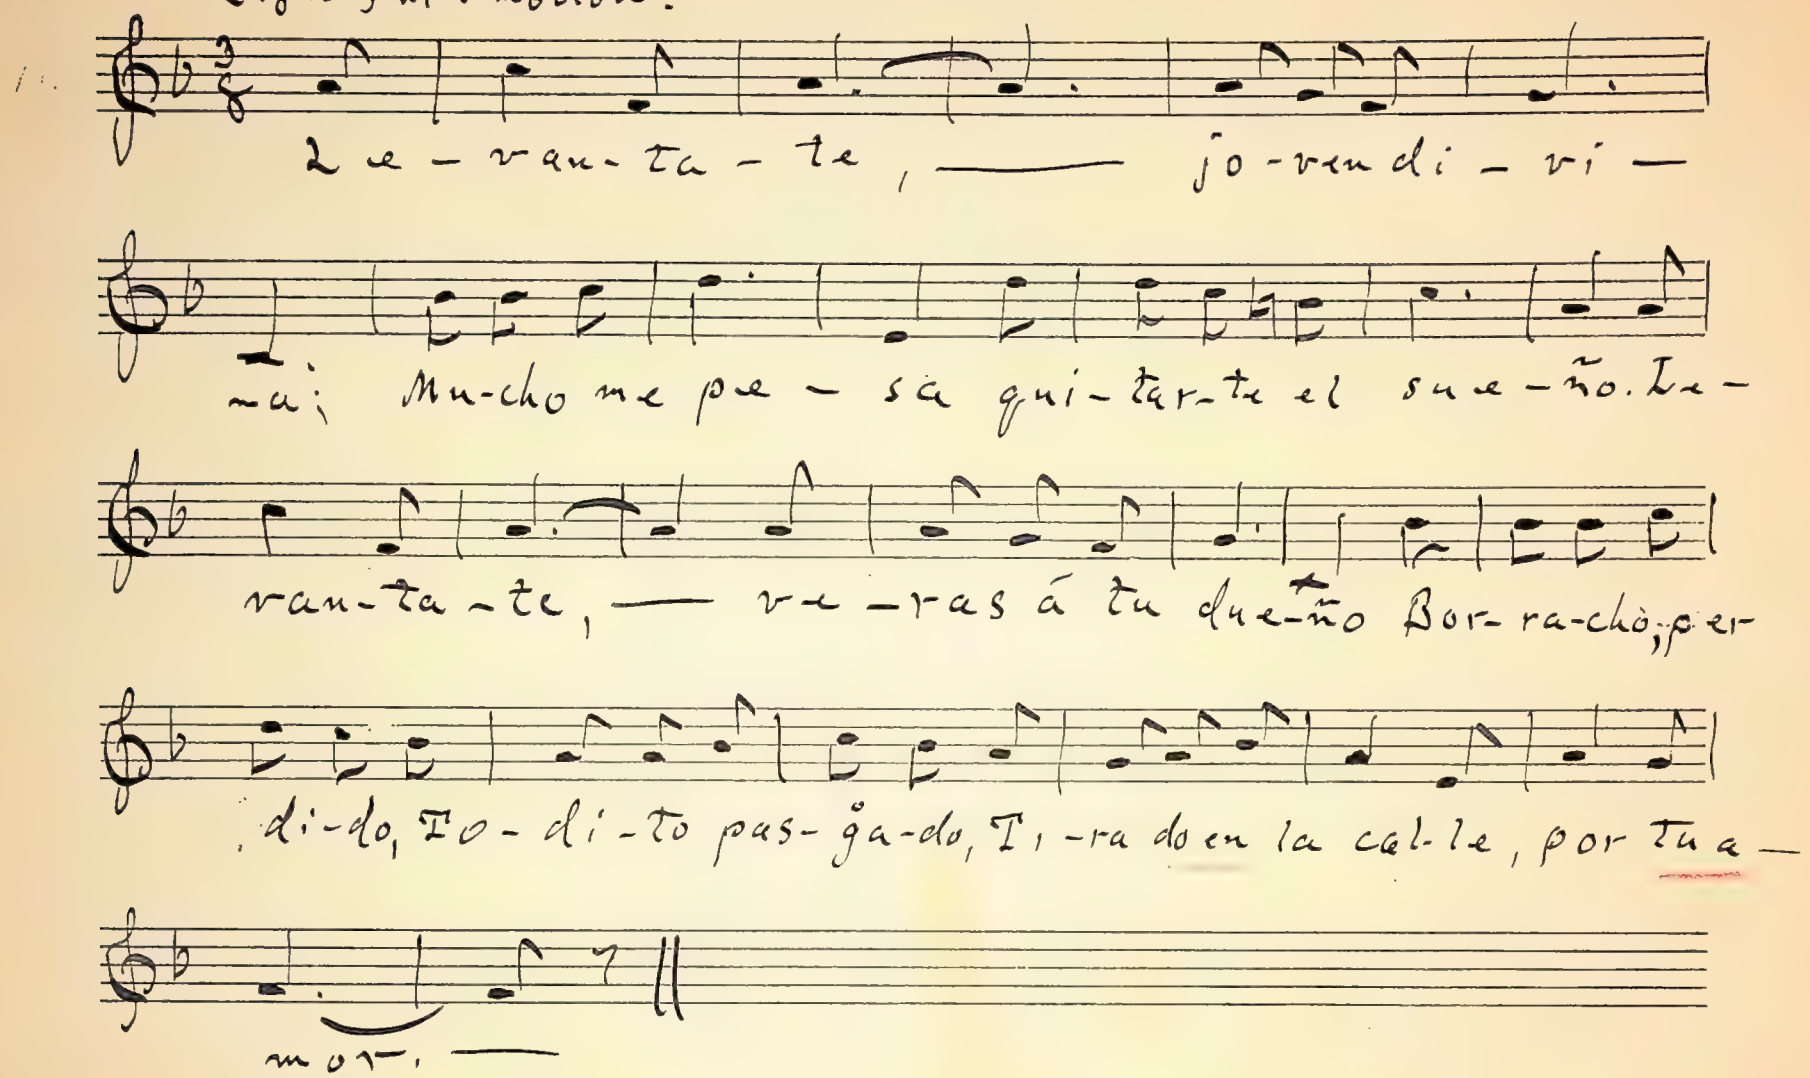 3
8
Le-van-ta-te, — jo-ven di-vi-
na; Mu-cho me pe-sa qui-tar-te el sue-ño. Le-
van-ta-te, — ve-ras á tu due-ño Bor-ra-cho, per-
di-do, To-di-to pas-ga-do, Ti-ra do en la cal-le, por tu a-
mor. —